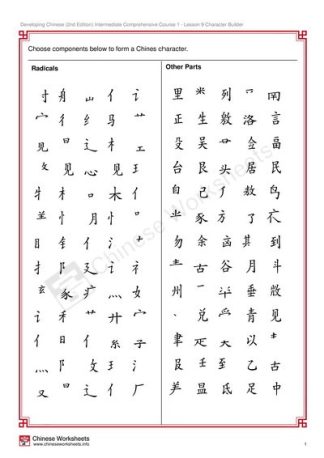 Developing Chinese (2nd Edition) Intermediate Comprehensive Course 1 - Lesson 9 Character Builder
Choose components below to form a Chines character.
Radicals
Other Parts
寸 舟 亻 讠
里 米 列 冖 南
宀 彳 纟 马 艹
正 生 敦 洛 言
见 罒 辶 礻
殳 吴 佥 畐
攵 见 心 见 王
台 艮 头 居 民
牜 木 口 木 亻
自 己 了 敖 鸟
忄 月 口
豕 方 了
目 钅 亻 氵 忄
勿 余 函 其 到
扌 阝 廴 讠 礻
古 谷 月 斗
玄 豕 疒 灬 女
州 垂 殷
讠 禾 艹 廾 宀
兑 青 见
亻 日 亻 糸 子
聿 疋 大 以 丰
灬 阝 攵 王 讠
艮 壬 至 乙 古
又 罒 辶 亻 厂
昷 氐 足 中
Chinese Worksheets
Chinese Worksheets
www.chineseworksheets.info
1